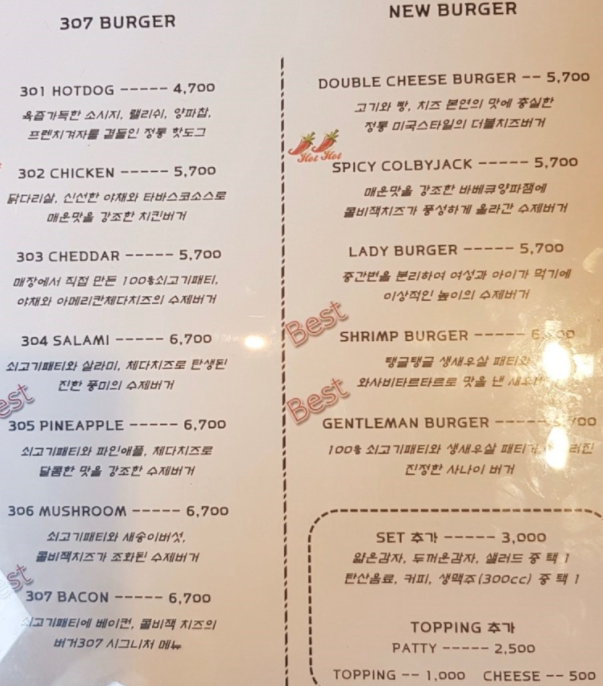 307 BURGER
301 HOTDOG ----- 4,700
육즙가득한 소시지, 랠리쉬, 양파찹,
프렌치겨자를 곁들인 정통 핫도그
302 CHICKEN ----- 5,700
닭다리살, 신선한 야채와 타바스코소스로
매운맛을 강조한 치킨버거
303 CHEDDAR ----- 5,700
매장에서 직접 만든 100%쇠고기패티,
야채와 아메리칸체다치즈의 수제버거
304 SALAMI ----- 6,700
쇠고기패티와 살라미, 체다치즈로 탄생된
진한 풍미의 수제버거
305 PINEAPPLE ----- 6,700
쇠고기패티와 파인애플, 체다치즈로
달콤한 맛을 강조한 수제버거
306 MUSHROOM ----- 6,700
쇠고기패티와 새송이버섯,
콜비잭치즈가 조화된 수제버거
307 BACON ----- 6,700
쇠고기패티에 베이컨, 콜비잭 치즈의
버거307 시그니처 메뉴
NEW BURGER
DOUBLE CHEESE BURGER -- 5,700
고기와 빵, 치즈 본연의 맛에 충실한
정통 미국스타일의 더블치즈버거
Hot Hot
SPICY COLBYJACK ----- 5,700
매운맛을 강조한 바베큐양파잼에
콜비잭치즈가 풍성하게 올라간 수제버거
LADY BURGER ----- 5,700
중간번을 분리하여 여성과 아이가 먹기에
이상적인 높이의 수제버거
Best
SHRIMP BURGER -----
탱글탱글 생새우살 패티와
와사비타르타르로 맛을 낸
Best
GENTLEMAN BURGER -----
100% 쇠고기패티와 생새우살 패티가
진정한 사나이 버거
SET 추가 ----- 3,000
얇은감자, 두꺼운감자, 샐러드 중 택 1
탄산음료, 커피, 생맥주(300cc) 중 택 1
TOPPING 추가
PATTY ----- 2,500
TOPPING -- 1,000 CHEESE -- 500